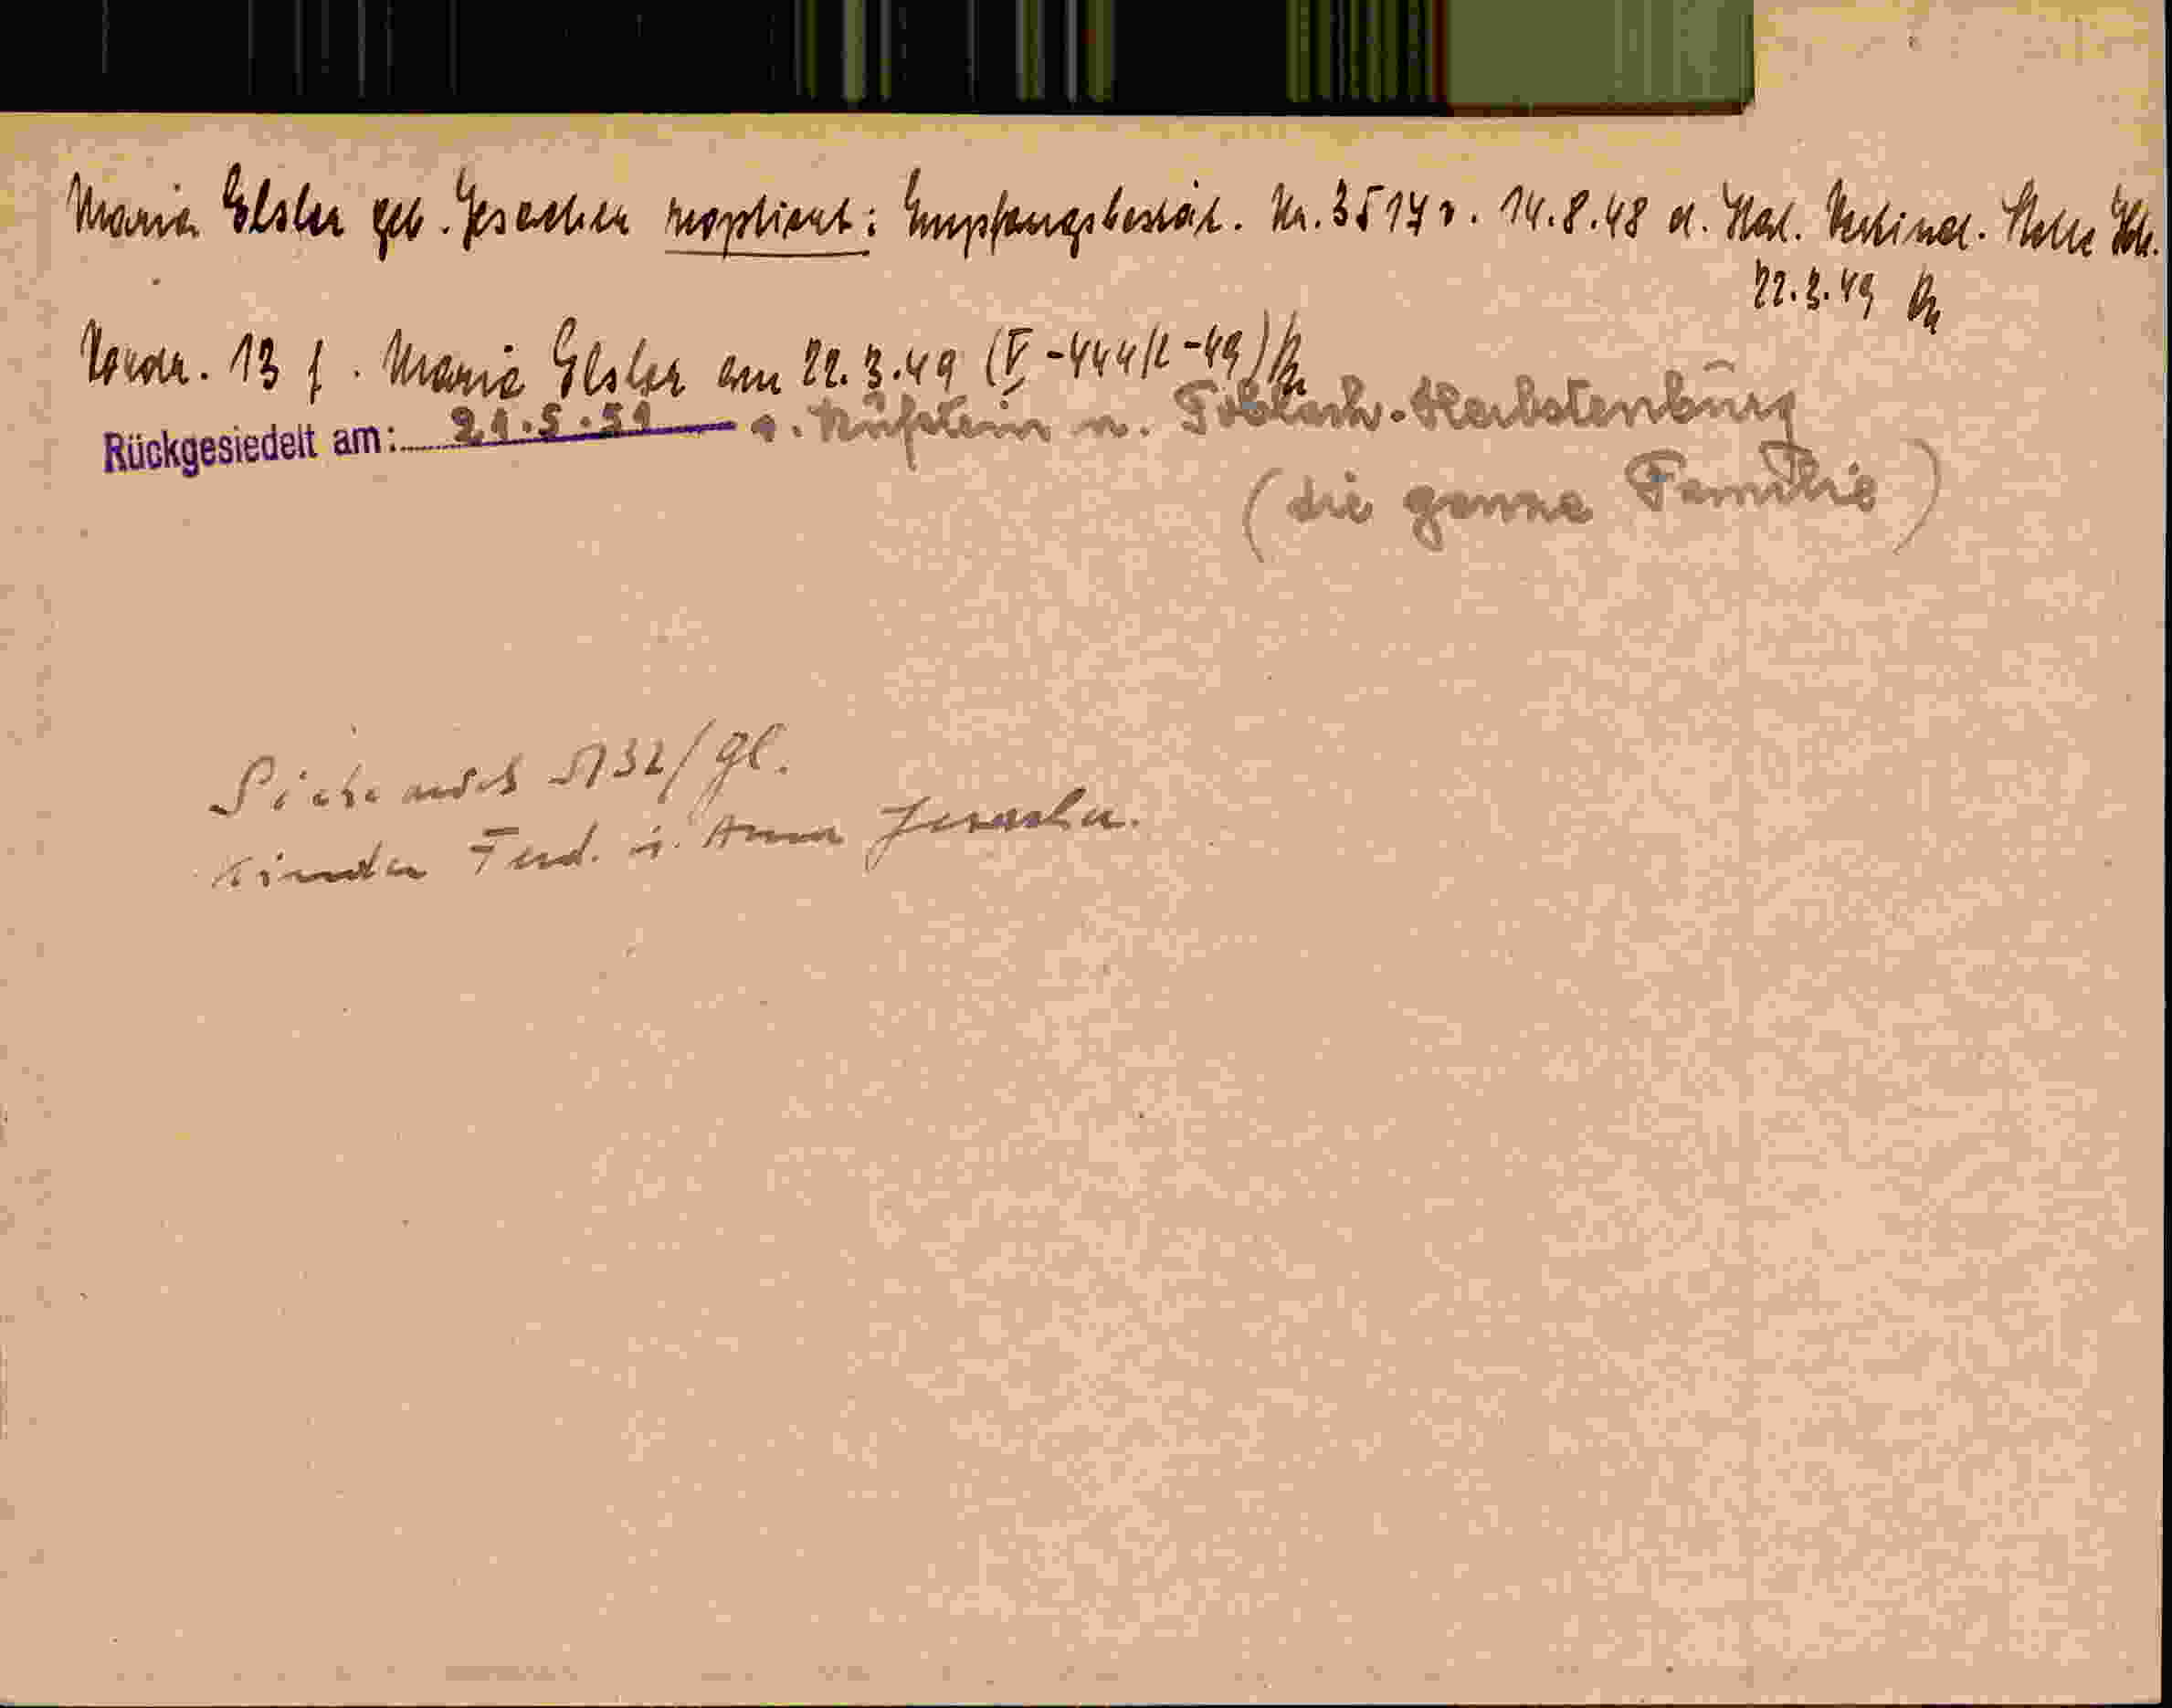 Maria Elsler geb. Jesacher reoptiert: Empfangsbestät. Nr. 3517 v. 14.8.48 d. Ital. Verbind. Stelle
22.3.49
Vordr. 13 f. Maria Elsler am 22.3.49 (V-444/2-49)
Rückgesiedelt am: 21.5.51 v. Kufstein n. Toblach-Herbstenburg
(die ganze Familie)
Siehe auch 5132/gl.
Kinder Ferd. u. Anna Jesacher.